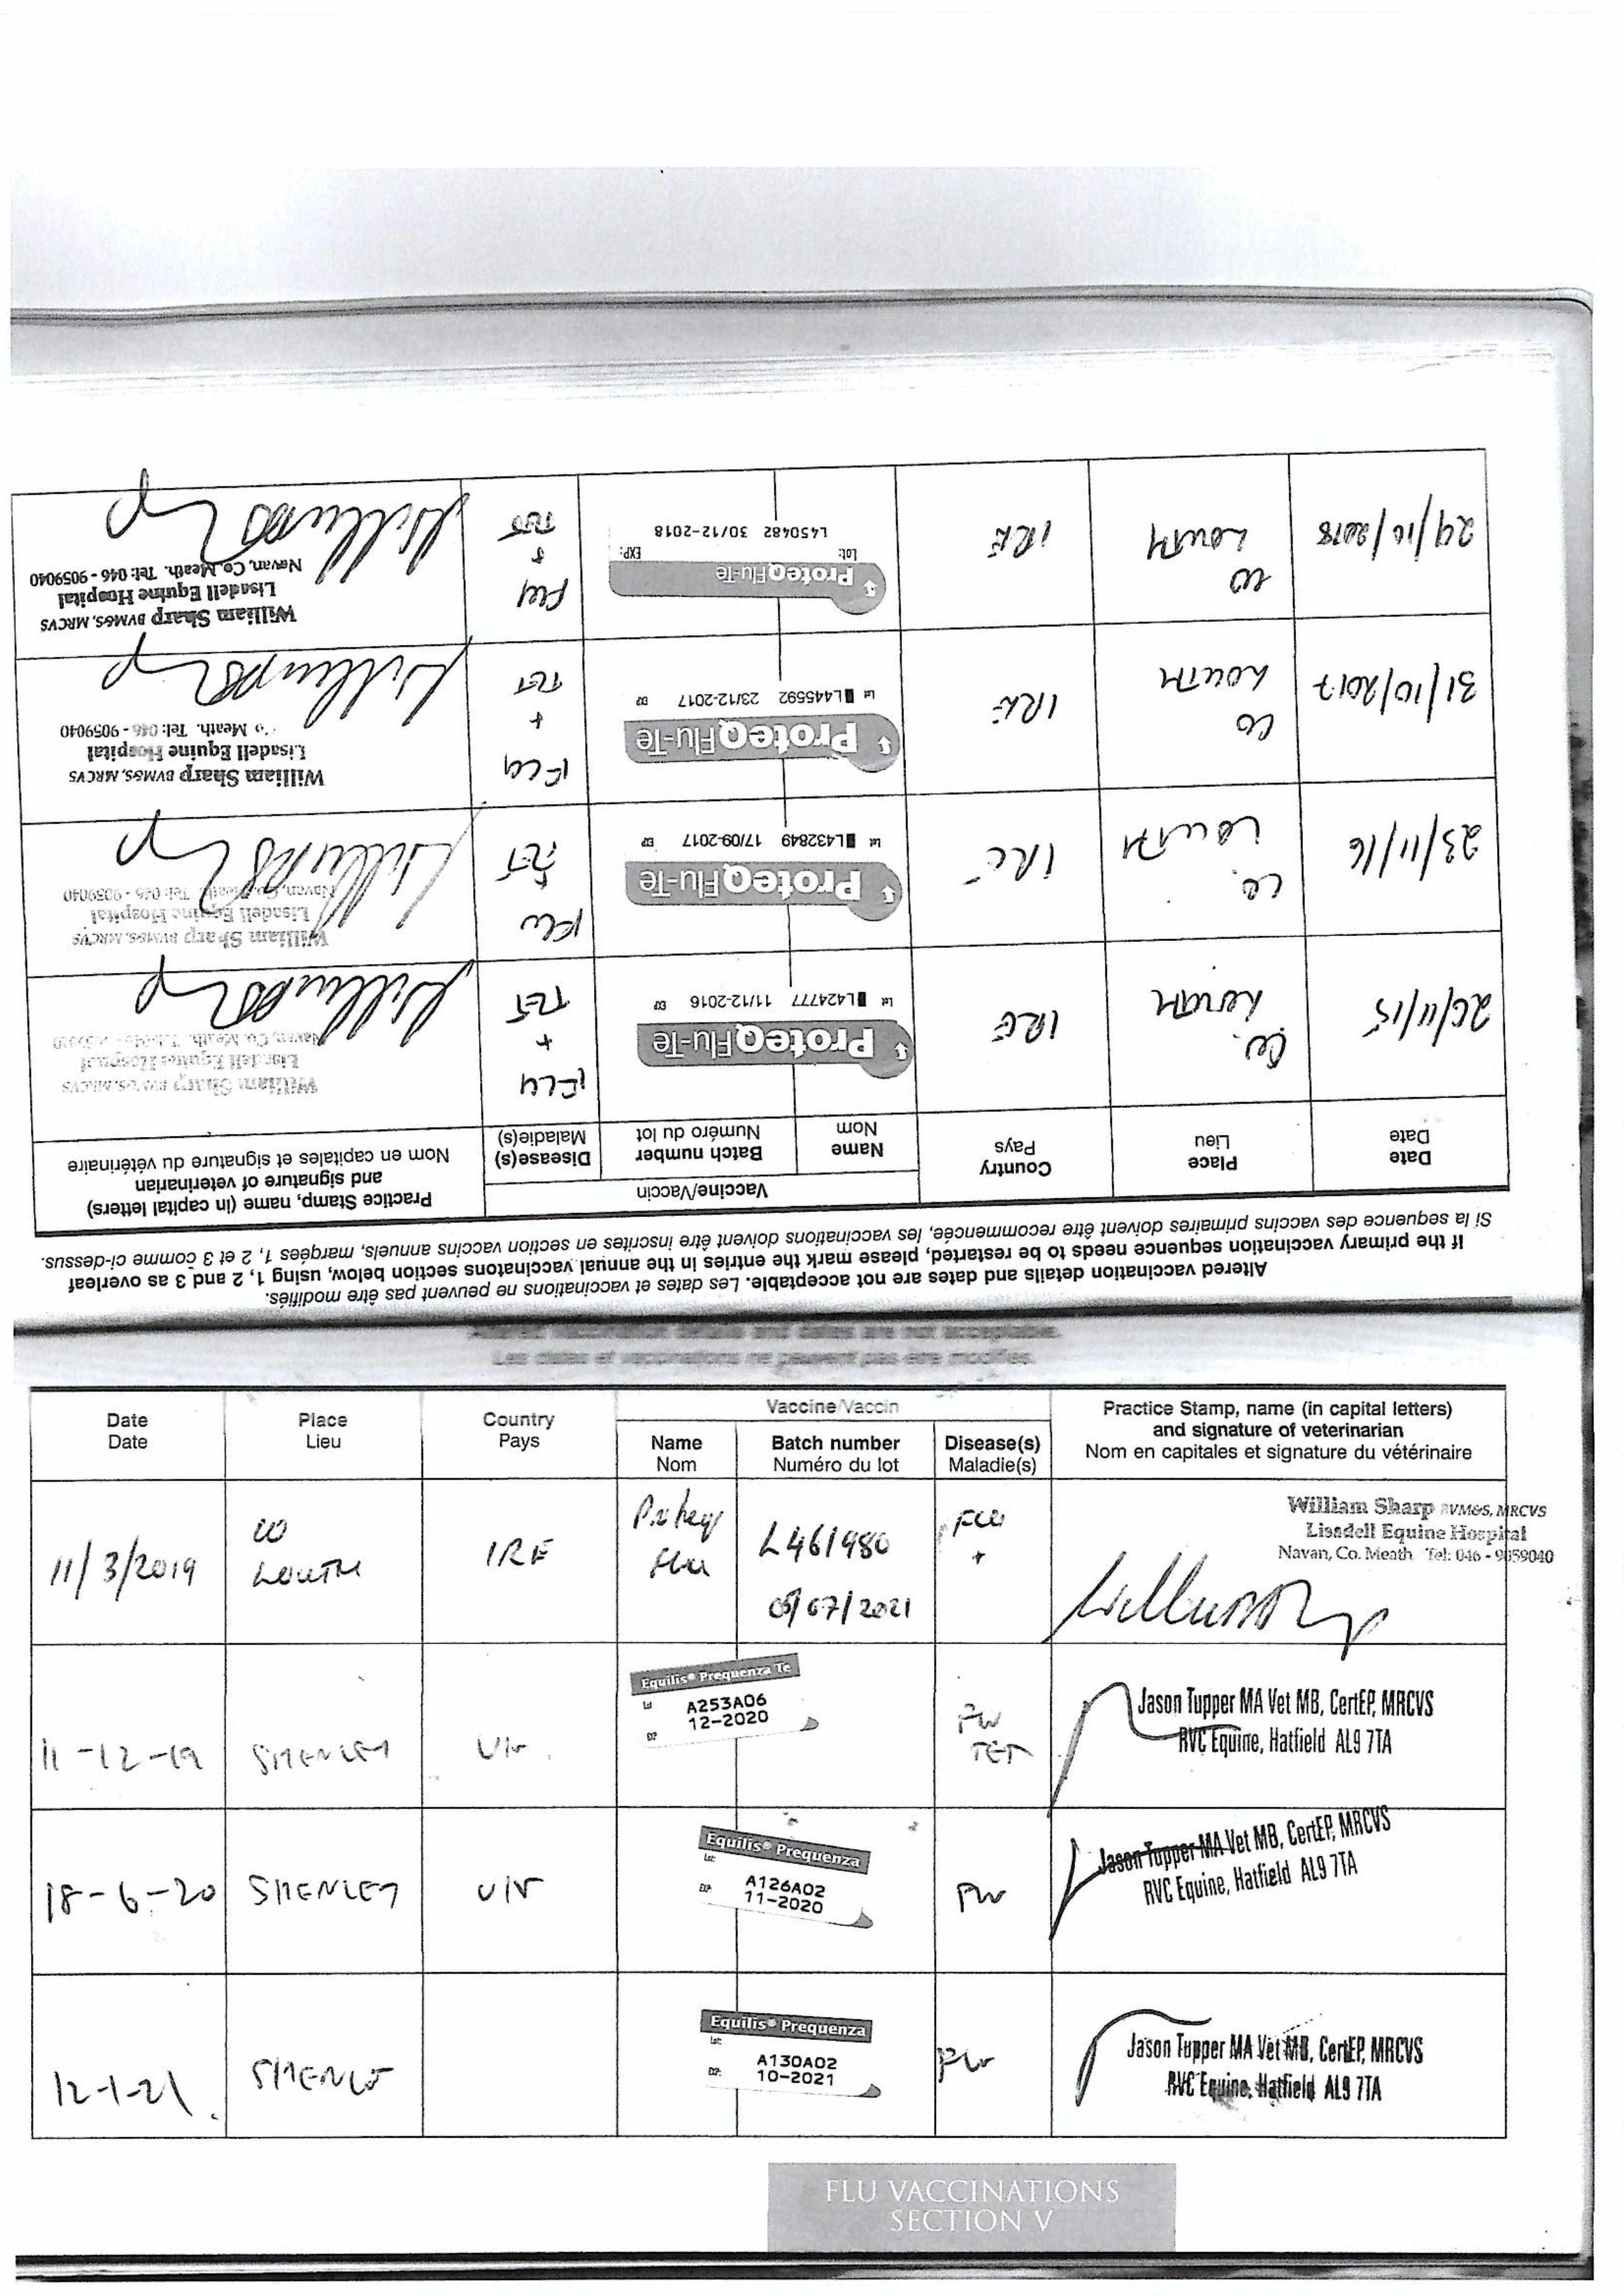 Altered vaccination details and dates are not acceptable. Les dates et vaccinations ne peuvent pas être modifiés.
If the primary vaccination sequence needs to be restarted, please mark the entries in the annual vaccinatons section below, using 1, 2 and 3 as overleaf
Si la sequence des vaccins primaires doivent être recommencée, les vaccinations doivent être inscrites en section vaccins annuels, margées 1, 2 et 3 comme ci-dessus.
Date
Date
Place
Lieu
Country
Pays
Vaccine/Vaccin
Name
Nom
Batch number
Numéro du lot
Disease(s)
Maladie(s)
Practice Stamp, name (in capital letters)
and signature of veterinarian
Nom en capitales et signature du vétérinaire
26/11/15
Co.
Louth
IRE
ProteqFlu-Te
Lot L424777 11/12-2016 EXP
FLU
+
TET
William Sharp BVM&S, MRCVS
Lisadell Equine Hospital
Navan, Co. Meath.
23/11/16
Co.
Louth
IRE
ProteqFlu-Te
Lot L432849 17/09-2017 EXP
Flu
+
TET
William Sharp BVM&S, MRCVS
Lisadell Equine Hospital
Navan, Co. Meath. Tel: 046 - 9059040
31/10/2017
Co
Louth
IRE
ProteqFlu-Te
Lot L445592 23/12-2017 EXP
FLU
+
TET
William Sharp BVM&S, MRCVS
Lisadell Equine Hospital
Co Meath. Tel: 046 - 9059040
29/10/2018
Co
Louth
IRE
ProteqFlu-Te
Lot: EXP:
L450482 30/12-2018
Flu
+
TET
William Sharp BVM&S, MRCVS
Lisadell Equine Hospital
Navan, Co. Meath. Tel: 046 - 9059040
Altered vaccination details and dates are not acceptable.
Les dates et vaccinations ne peuvent pas être modifiés.
Date
Date
Place
Lieu
Country
Pays
Vaccine/Vaccin
Name
Nom
Batch number
Numéro du lot
Disease(s)
Maladie(s)
Practice Stamp, name (in capital letters)
and signature of veterinarian
Nom en capitales et signature du vétérinaire
11/3/2019
CO
LOUTH
IRE
Proteq
Flu
L461980
05/07/2021
FLU
+
William Sharp BVM&S, MRCVS
Lisadell Equine Hospital
Navan, Co. Meath Tel: 046 - 9059040
11-12-19
SHENLEY
UK.
Equilis® Prequenza Te
Lot
A253A06
12-2020
EXP
FLU
TET
Jason Tupper MA Vet MB, CertEP, MRCVS
RVC Equine, Hatfield AL9 7TA
18-6-20
SHENLEY
UK
Equilis® Prequenza
Lot:
EXP:
A126A02
11-2020
FLU
Jason Tupper MA Vet MB, CertEP, MRCVS
RVC Equine, Hatfield AL9 7TA
12-1-21.
SHENLEY
Equilis® Prequenza
Lot:
EXP:
A130A02
10-2021
FLU
Jason Tupper MA Vet MB, CertEP, MRCVS
RVC Equine, Hatfield AL9 7TA
FLU VACCINATIONS
SECTION V